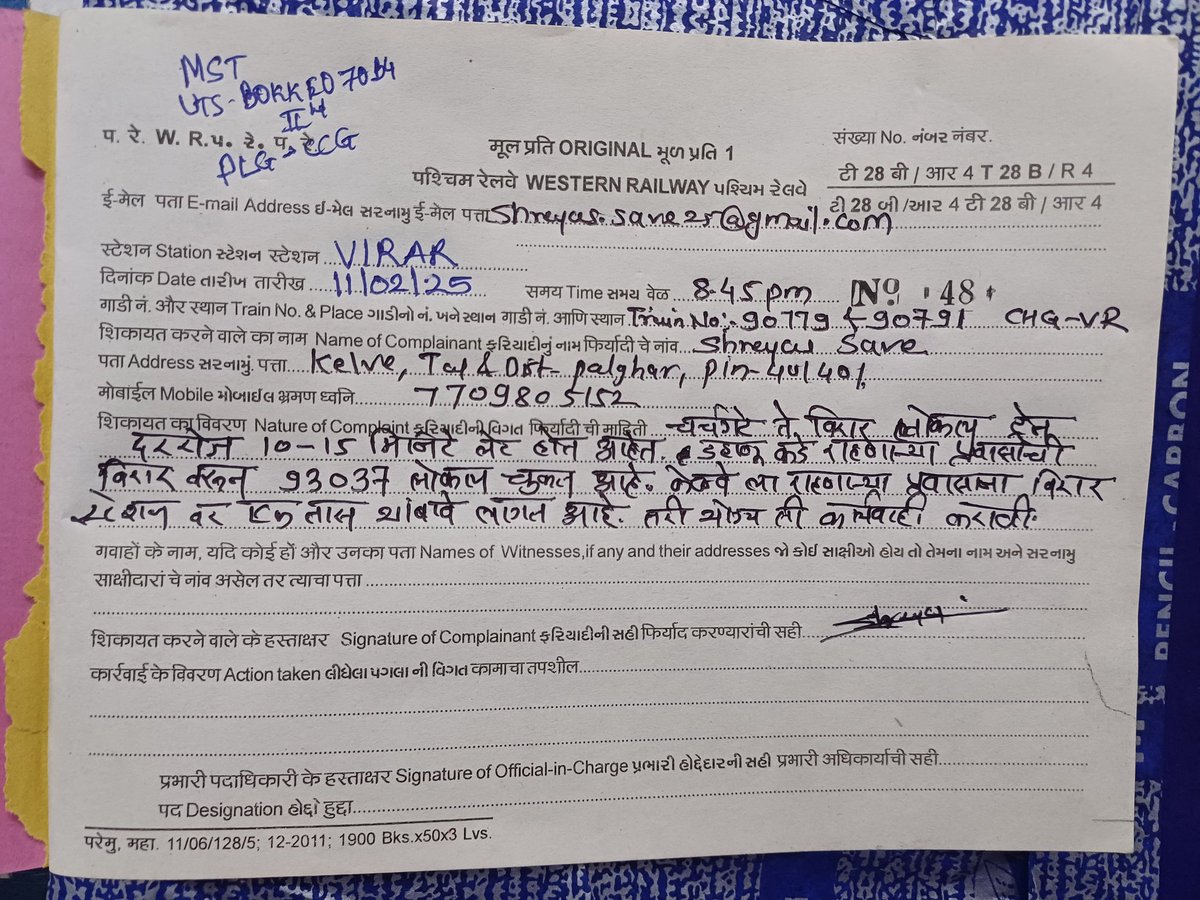 MST
UTS-
IInd
PLG → CCG
प. रे. W. R.પ. રે. प. रे.
मूल प्रति ORIGINAL મૂળ પ્રતિ 1
संख्या No. નંબર नंबर.
पश्चिम रेलवे WESTERN RAILWAY પશ્ચિમ રેલવે
टी 28 बी / आर 4 T 28 B / R 4
ટી 28 બી /આર 4 टी 28 बी / आर 4
ई-मेल पता E-mail Address ઇ-મેલ સરનામુ ई-मेल पत्ता shreyas.save25@gmail.com
स्टेशन Station સ્ટેશન स्टेशन VIRAR
दिनांक Date તારીખ तारीख 11/02/25 समय Time સમય वेळ 8.45pm No 48
गाडी नं. और स्थान Train No. & Place ગાડીનો નં. અને સ્થાન गाडी नं. आणि स्थान Train No:- 90779 & 90791 CHG-VR
शिकायत करने वाले का नाम Name of Complainant ફરિયાદીનું નામ फिर्यादी चे नांव Shreyas Save
पता Address સરનામું. पत्ता Kelve, Tal & Dist- palghar, pin-401401.
मोबाईल Mobile મોબાઇલ भ्रमण ध्वनि 7709805152
शिकायत का विवरण Nature of Complaint ફરિયાદીની વિગત फिर्यादी ची माहिती चर्चगेट ते विरार लोकल ट्रेन
दररोज 10-15 मिनिटे लेट होत आहेत. डहाणू कडे राहणाऱ्या प्रवासांची
विरार वरून 93037 लोकल चुकत आहे. केळवे ला राहणाऱ्या प्रवासांना विरार
स्टेशन वर तास थांबावे लागत आहे. तरी योग्य ती कार्यवाही करावी.
गवाहों के नाम, यदि कोई हों और उनका पता Names of Witnesses,if any and their addresses જો કોઈ સાક્ષીઓ હોય તો તેમના નામ અને સરનામુ
साक्षीदारां चे नांव असेल तर त्याचा पत्ता
शिकायत करने वाले के हस्ताक्षर Signature of Complainant ફરિયાદીની સહી फिर्याद करण्यारांची सही
कार्रवाई के विवरण Action taken લીધેલા પગલા ની વિગત कामाचा तपशील
प्रभारी पदाधिकारी के हस्ताक्षर Signature of Official-in-Charge પ્રભારી હોદ્દેદારની સહી प्रभारी अधिकार्याची सही
पद Designation હોદ્દો हुद्दा
परेमु, महा. 11/06/128/5; 12-2011; 1900 Bks.x50x3 Lvs.
PENCIL CARBON